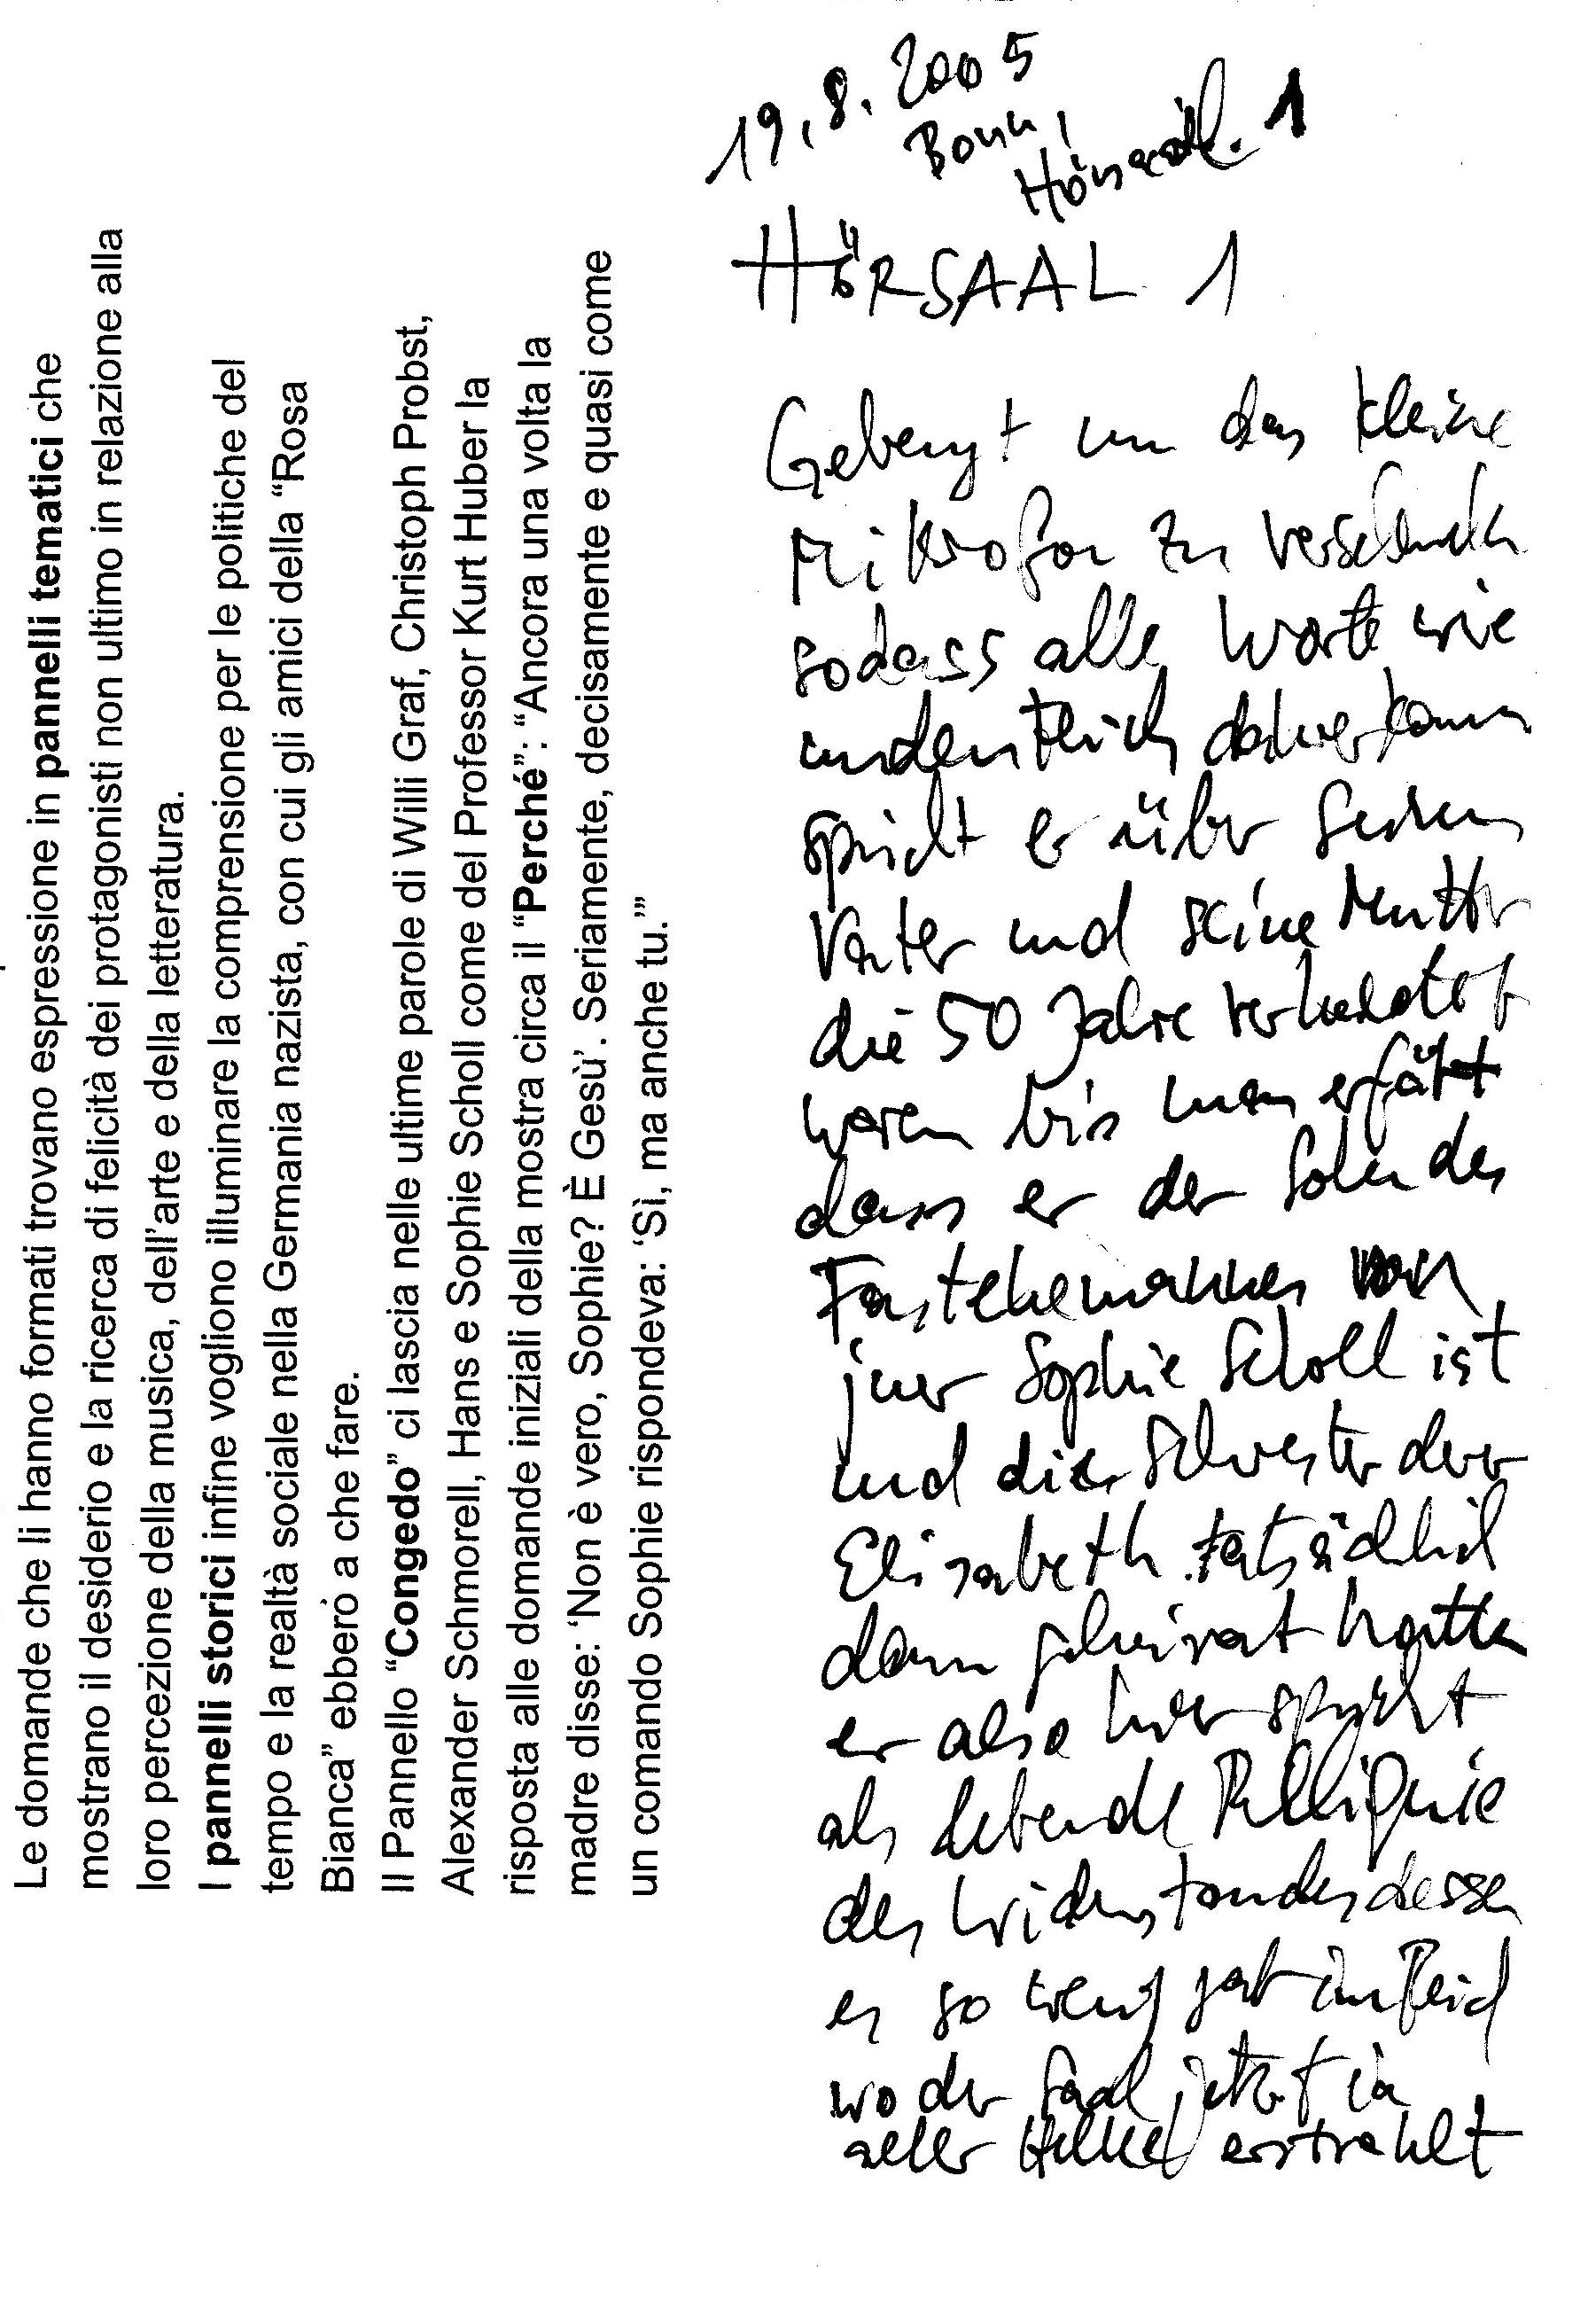 Le domande che li hanno formati trovano espressione in pannelli tematici che
mostrano il desiderio e la ricerca di felicità dei protagonisti non ultimo in relazione alla
loro percezione della musica, dell'arte e della letteratura.
I pannelli storici infine vogliono illuminare la comprensione per le politiche del
tempo e la realtà sociale nella Germania nazista, con cui gli amici della “Rosa
Bianca” ebbero a che fare.
Il Pannello “Congedo” ci lascia nelle ultime parole di Willi Graf, Christoph Probst,
Alexander Schmorell, Hans e Sophie Scholl come del Professor Kurt Huber la
risposta alle domande iniziali della mostra circa il “Perché”: “Ancora una volta la
madre disse: ‘Non è vero, Sophie? È Gesù’. Seriamente, decisamente e quasi come
un comando Sophie rispondeva: ‘Sì, ma anche tu.’”
19.8.2005
Bonn,
Hörsaal. 1
HÖRSAAL 1
Gebeugt um das kleine
Mikrofon zu
sodass alle Worte wie
undeutlich daherkamen
spricht er über seinen
Vater und seine Mutter
die 50 Jahre verheiratet
waren bis man erfährt
dass er der Sohn des
Fastehemannes von
jener Sophie Scholl ist
und die Schwester der
Elisabeth tatsächlich
dann geheiratet hatte
er also hier spricht
als lebende Relliquie
des Widerstandes dessen
es so wenig gab im Reich
wo der Saal jetzt in
aller Helle erstrahlt